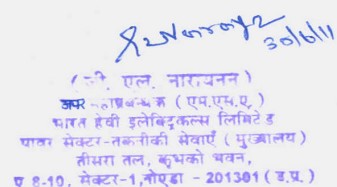 30/6/11
एल. नारायनन )
( एम.एस.ए. )
भारत हेवी इलेक्ट्रिकल्स लिमिटेड
पावर सेक्टर-तकनीकी सेवाएँ ( मुख्यालय )
तीसरा तल, कृभको भवन,
ए 8-10, सेक्टर-1,नोएडा - 201301 ( उ.प्र. )